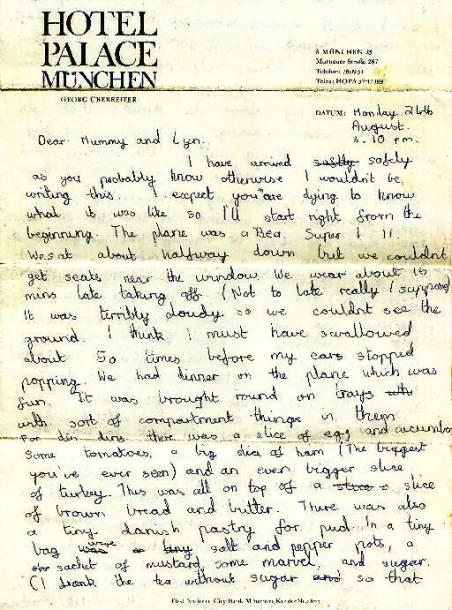 HOTEL
PALACE
MÜNCHEN
GEORG ÜBERREITER
8 MÜNCHEN
DATUM: Monday 24th
August.
8.10 pm.
Dear Mummy and Lyn.
I have arrived saftly safely
as you probably know otherwise I wouldn't be
writing this. I expect you're dying to know
what it was like so I'll start right from the
beginning. The plane was a Bea. Super 1 11
We sat at about halfway down but we couldn't
get seats near the window. We wear about 15
mins late taking off (Not to late really I suppose)
It was terribly cloudy so we couldnt see the
ground. I think I must have swallowed
about 50 times before my ears stopped
popping. We had dinner on the plane which was
fun. It was brought round on trays
with sort of compartment things in them
For din dins there was a slice of egg and cucumber
Some tomatoes, a big slice of ham (The biggest
you've ever seen) and an even bigger slise
of turkey. This was all on top of a slice slice
of brown bread and butter. There was also
a tiny danish pastry for pud. In a tiny
bag was were a tiny salt and pepper pots, a
sachet of mustard, some marvel, and sugar.
(I drank the tea without sugar and so that